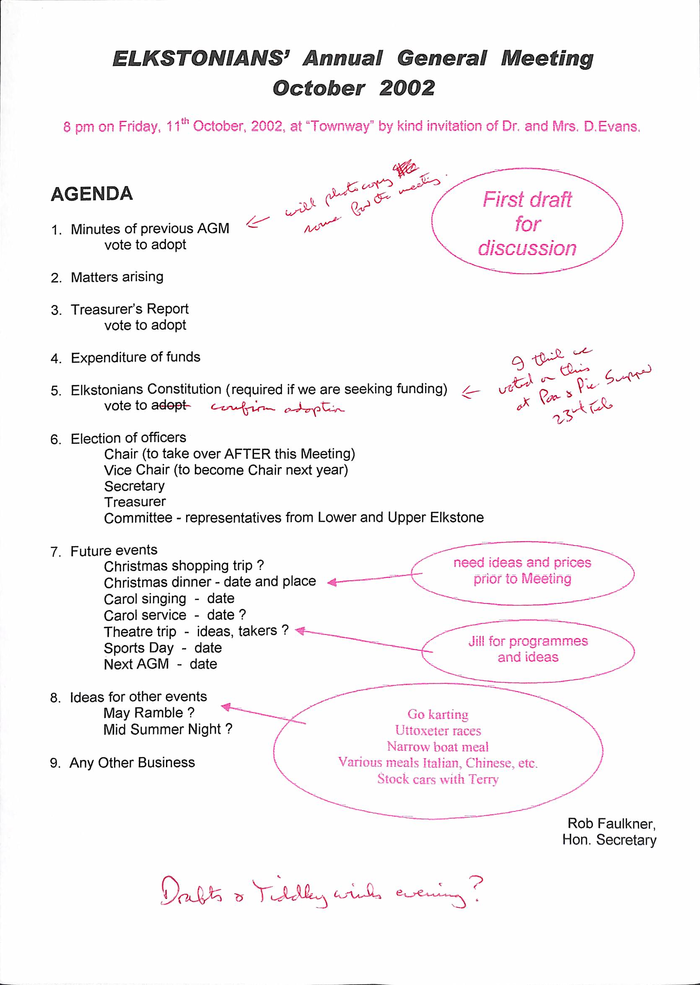 ELKSTONIANS' Annual General Meeting
October 2002
8 pm on Friday, 11th October, 2002, at "Townway" by kind invitation of Dr. and Mrs. D.Evans.
First draft
for
discussion
AGENDA
← will photocopy
some for the meeting.
1. Minutes of previous AGM
vote to adopt
2. Matters arising
3. Treasurer's Report
vote to adopt
4. Expenditure of funds
5. Elkstonians Constitution (required if we are seeking funding)
vote to adopt confirm adoption
← I think we
voted on this
at Pea & Pie Supper
23rd Feb
6. Election of officers
Chair (to take over AFTER this Meeting)
Vice Chair (to become Chair next year)
Secretary
Treasurer
Committee - representatives from Lower and Upper Elkstone
7. Future events
Christmas shopping trip ?
Christmas dinner - date and place
need ideas and prices
prior to Meeting
Carol singing - date
Carol service - date ?
Theatre trip - ideas, takers ?
Jill for programmes
and ideas
Sports Day - date
Next AGM - date
8. Ideas for other events
May Ramble ?
Mid Summer Night ?
Go karting
Uttoxeter races
Narrow boat meal
Various meals Italian, Chinese, etc.
Stock cars with Terry
9. Any Other Business
Rob Faulkner,
Hon. Secretary
Drafts & Tiddley winks evening?